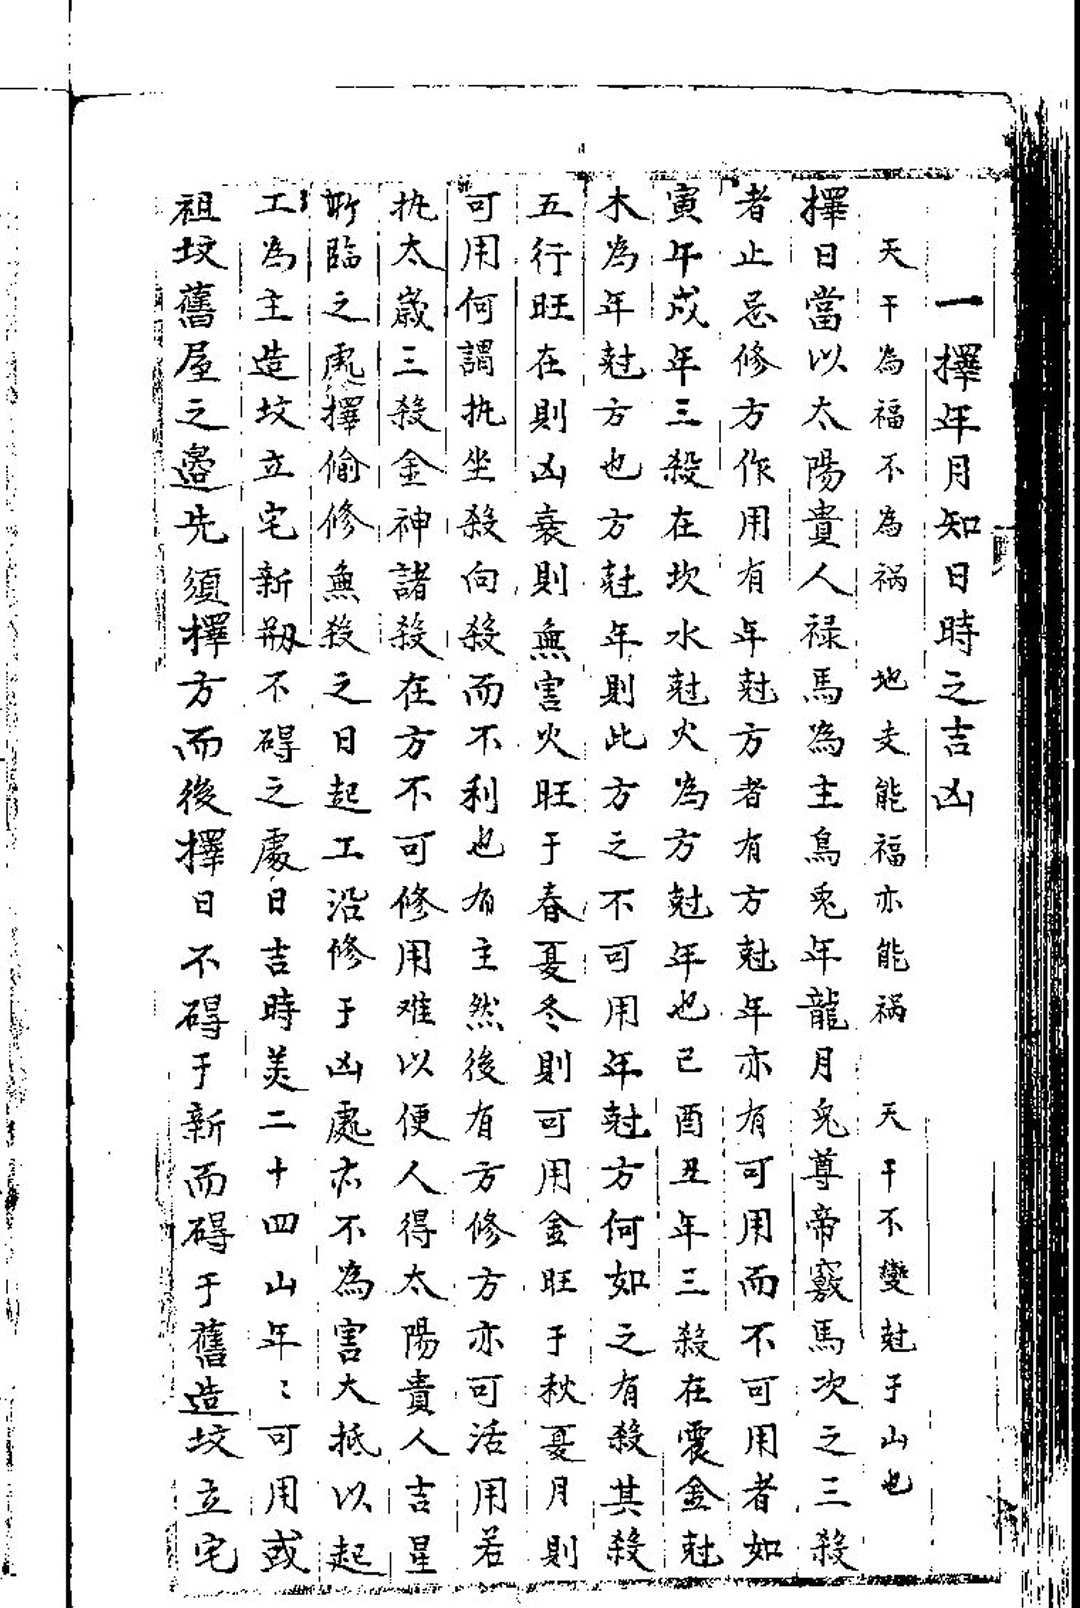 一擇年月知日時之吉凶
天干為福不為祸 地支能福亦能祸 天干不變尅于山也
擇日當以太陽貴人禄馬為主烏兎年龍月兎尊帝竅馬次之三殺
者止忌修方作用有年尅方者有方尅年亦有可用而不可用者如
寅午戌年三殺在坎水尅火為方尅年也巳酉丑年三殺在震金尅
木為年尅方也方尅年則此方之不可用年尅方何如之有殺其殺
五行旺在則凶衰則無害火旺于春夏冬則可用金旺于秋夏月則
可用何謂执坐殺向殺而不利也有主然後有方修方亦可活用若
执太歲三殺金神諸殺在方不可修用难以便人得太陽貴人吉星
所臨之處擇偷修無殺之日起工沿修于凶處亦不為害大抵以起
工為主造坟立宅新刱不碍之處日吉時美二十四山年〻可用或
祖坟舊屋之邊先須擇方而後擇日不碍于新而碍于舊造坟立宅